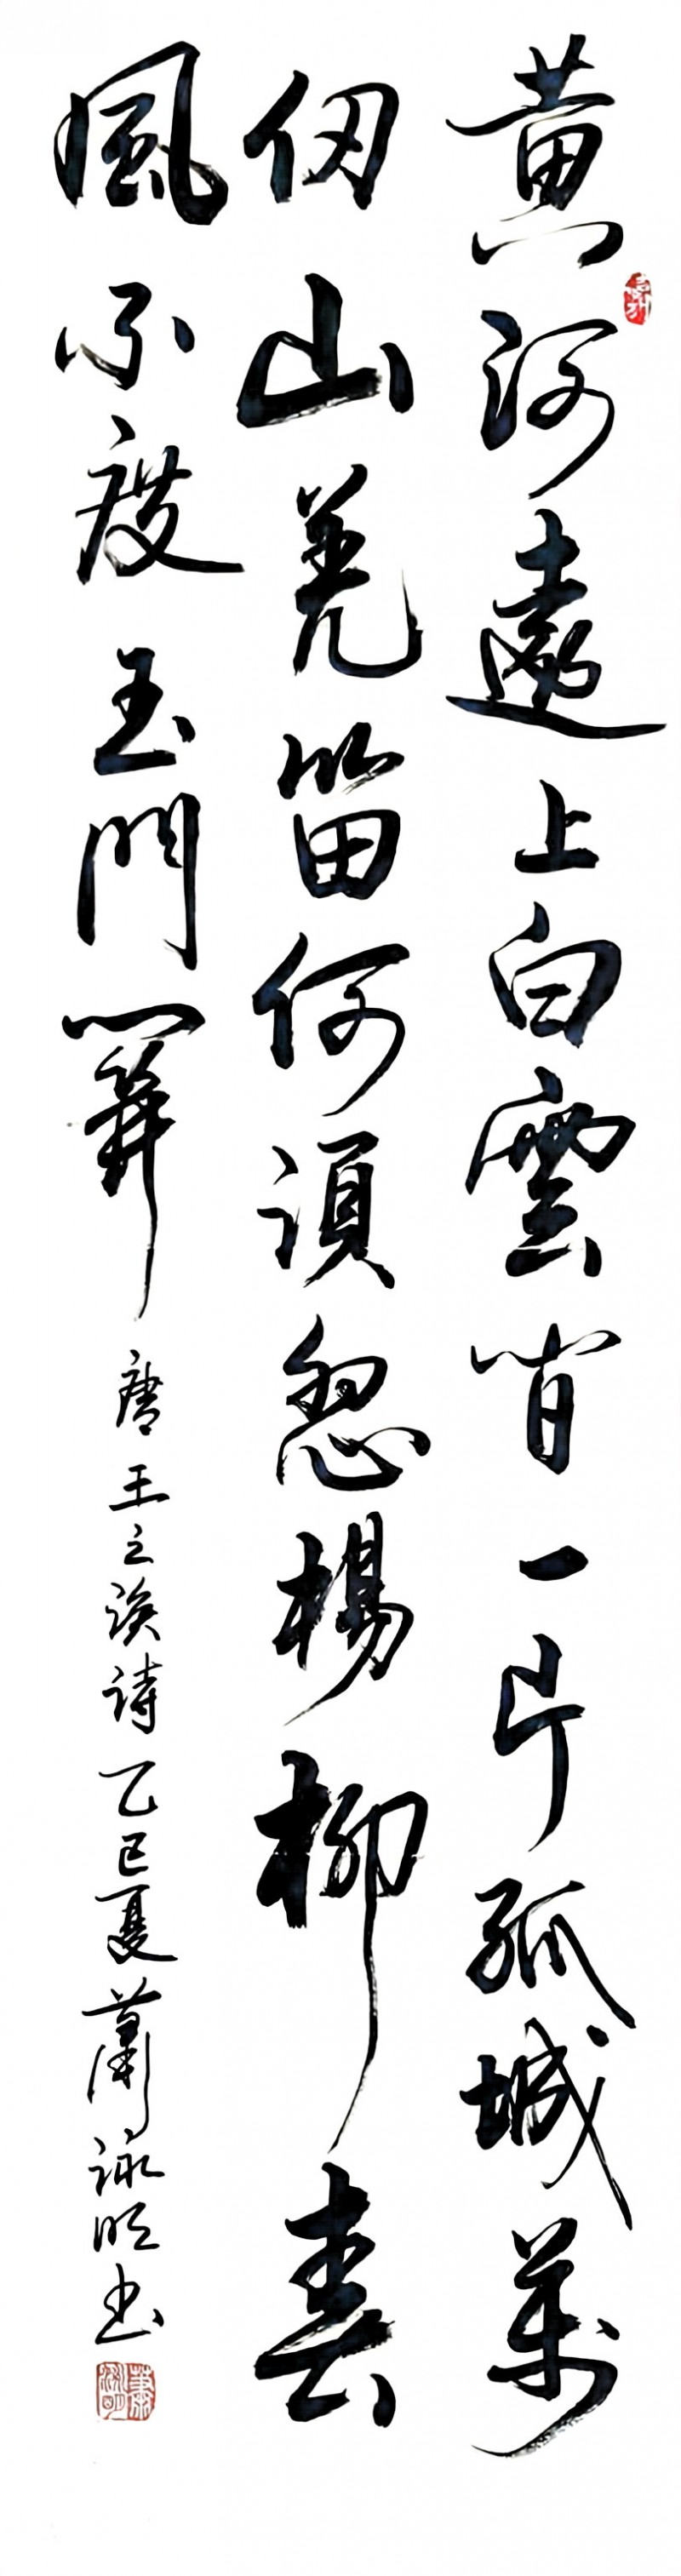 黄河遠上白雲間一片孤城萬
仞山羌笛何須怨楊柳春
風不度玉門關 唐王之渙詩乙巳夏蕭詠明书